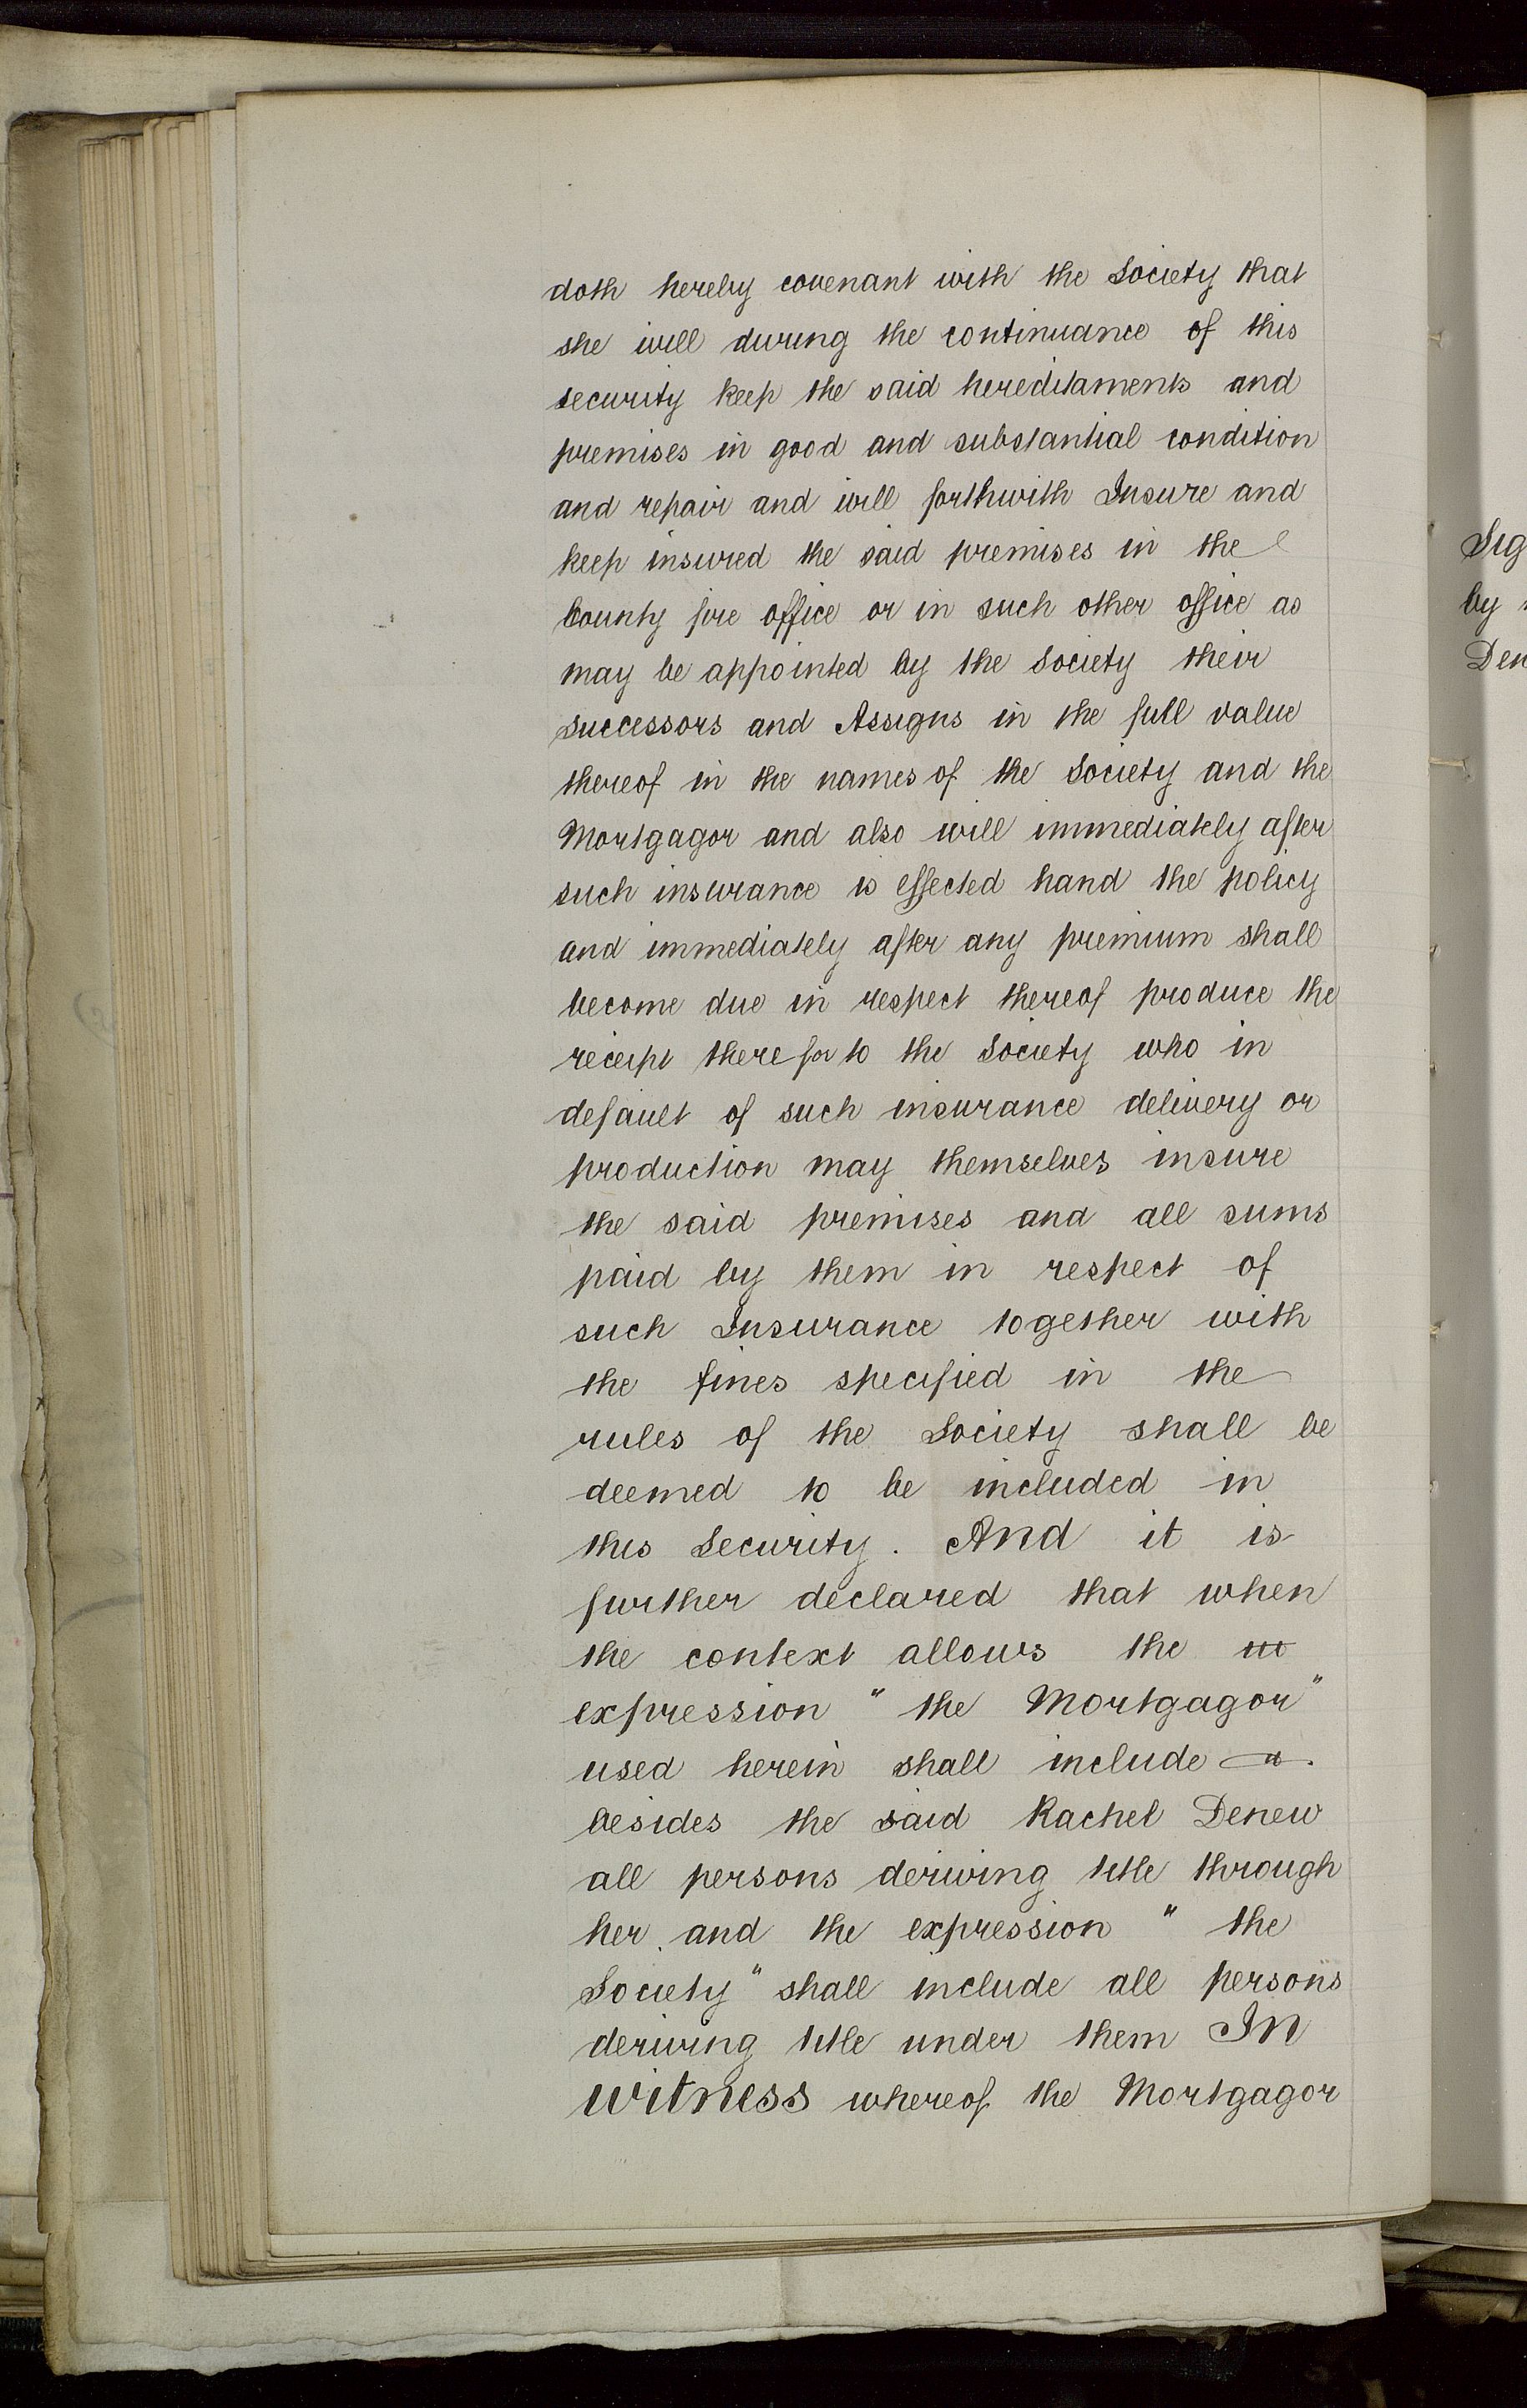 doth hereby covenant with the Society that
she will during the continuance of this
security keep the said hereditaments and
premises in good and substantial condition
and repair and will forthwith Insure and
keep insured the said premises in the
County fire office or in such other office as
may be appointed by the Society their
successors and Assigns in the full value
thereof in the names of the Society and the
Mortgagor and also will immediately after
such insurance is effected hand the policy
and immediately after any premium shall
become due in respect thereof produce the
receipt therefor to the Society who in
default of such insurance delivery or
production may themselves insure
the said premises and all sums
paid by them in respect of
such Insurance together with
the fines specified in the
rules of the Society shall be
deemed to be included in
this Security. And it is
further declared that when
the context allows the
expression "the Mortgagor"
used herein shall include
besides the said Rachel Denew
all persons deriving title through
her and the expression "the
Society" shall include all persons
deriving title under them In
witness whereof the Mortgagor
Sig
by
Den